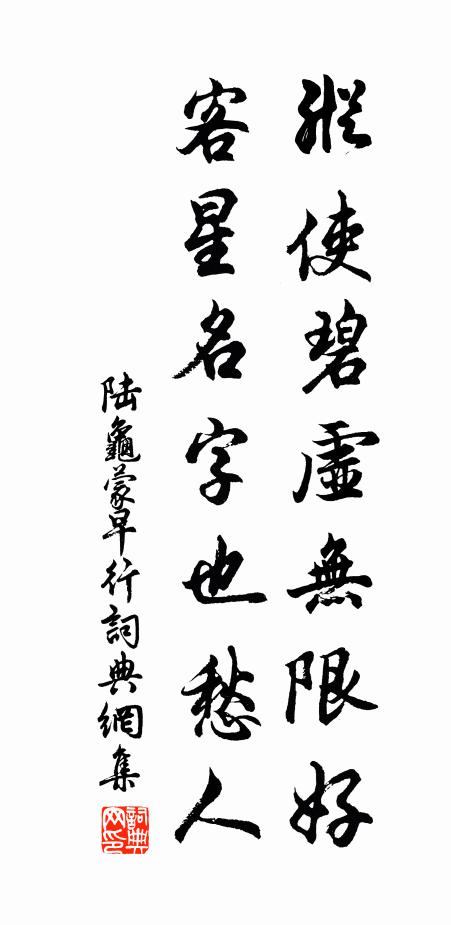 縱使碧虛無限好
客星名字也愁人
陸龜蒙早行詞典網集
詞典網印